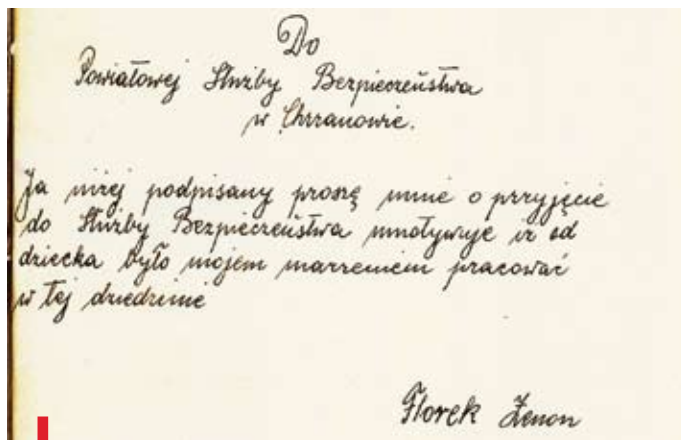 Do
Powiatowej Służby Bezpieczeństwa
w Chrzanowie.
Ja niżej podpisany proszę mnie o przyjęcie
do Służby Bezpieczeństwa umotywuje iz od
dziecka było mojem marzeniem pracować
w tej dziedzinie
Florek Zenon